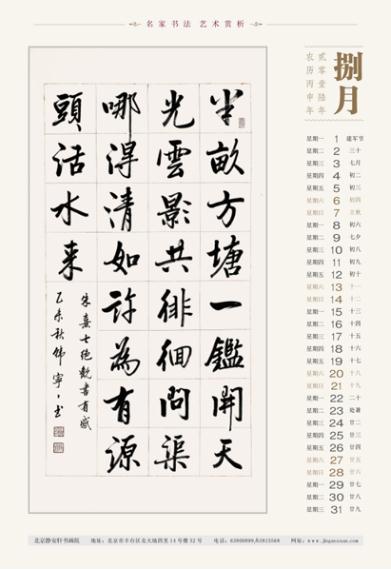 名家书法 艺术赏析
捌月
贰零壹陆年
农历丙申年
半畝方塘一鑑開天
光雲影共徘徊問渠
哪得清如許為有源
頭活水來
朱熹七绝觀書有感
乙未秋
星期一 1 建军节
星期二 2 三十
星期三 3 七月
星期四 4 初二
星期五 5 初三
星期六 6 初四
星期日 7 立秋
星期一 8 初六
星期二 9 七夕
星期三 10 初八
星期四 11 初九
星期五 12 初十
星期六 13 十一
星期日 14 十二
星期一 15 十三
星期二 16 十四
星期三 17 十五
星期四 18 十六
星期五 19 十七
星期六 20 十八
星期日 21 十九
星期一 22 二十
星期二 23 处暑
星期三 24 廿二
星期四 25 廿三
星期五 26 廿四
星期六 27 廿五
星期日 28 廿六
星期一 29 廿七
星期二 30 廿八
星期三 31 廿九
北京静安轩书画院 地址：北京市丰台区北大地四里14号楼32号 电话： 网址：